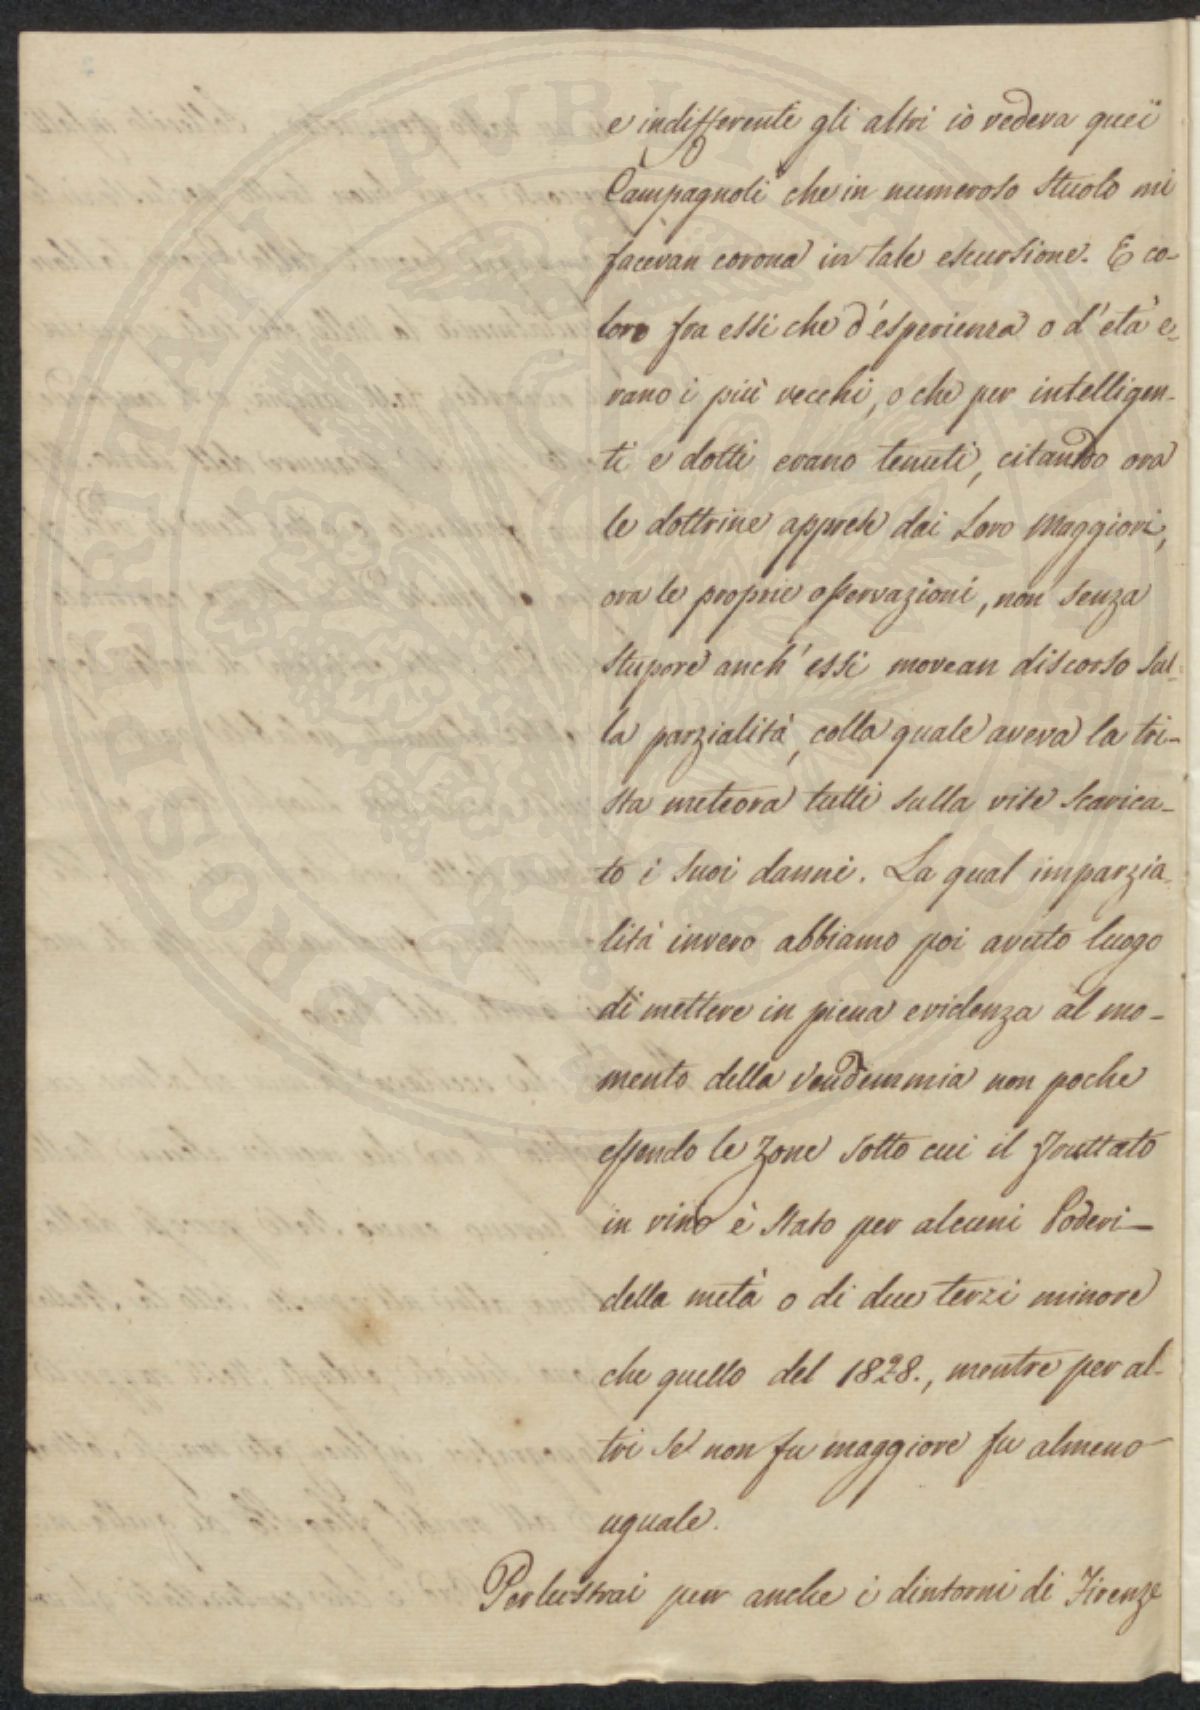 e indifferente gli altri iò vedeva quei
Campagnoli che in numeroso stuolo mi
facevan corona in tale escursione. E co-
loro fra essi che d'esperienza o d'età e-
rano i più vecchi, o che per intelligen-
ti e dotti erano tenuti, citando ora
le dottrine apprese dai Loro Maggiori,
ora le proprie osservazioni, non senza
stupore anch'essi movean discorso sul-
la parzialità, colla quale aveva la tri-
sta meteora tutti sulla vite scarica-
to i suoi danni. La qual imparzia-
lità invero abbiamo poi avuto luogo
di mettere in piena evidenza al mo-
mento della Vendemmia non poche
essendo le Zone sotto cui il fruttato
in vino è stato per alcuni Poderi-
della metà o di due terzi minore
che quello del 1828., mentre per al-
tri se non fu maggiore fu almeno
uguale.
Perlustrai pur anche i dintorni di Firenze
PROSPERITATI PUBLICAE AUGENDAE